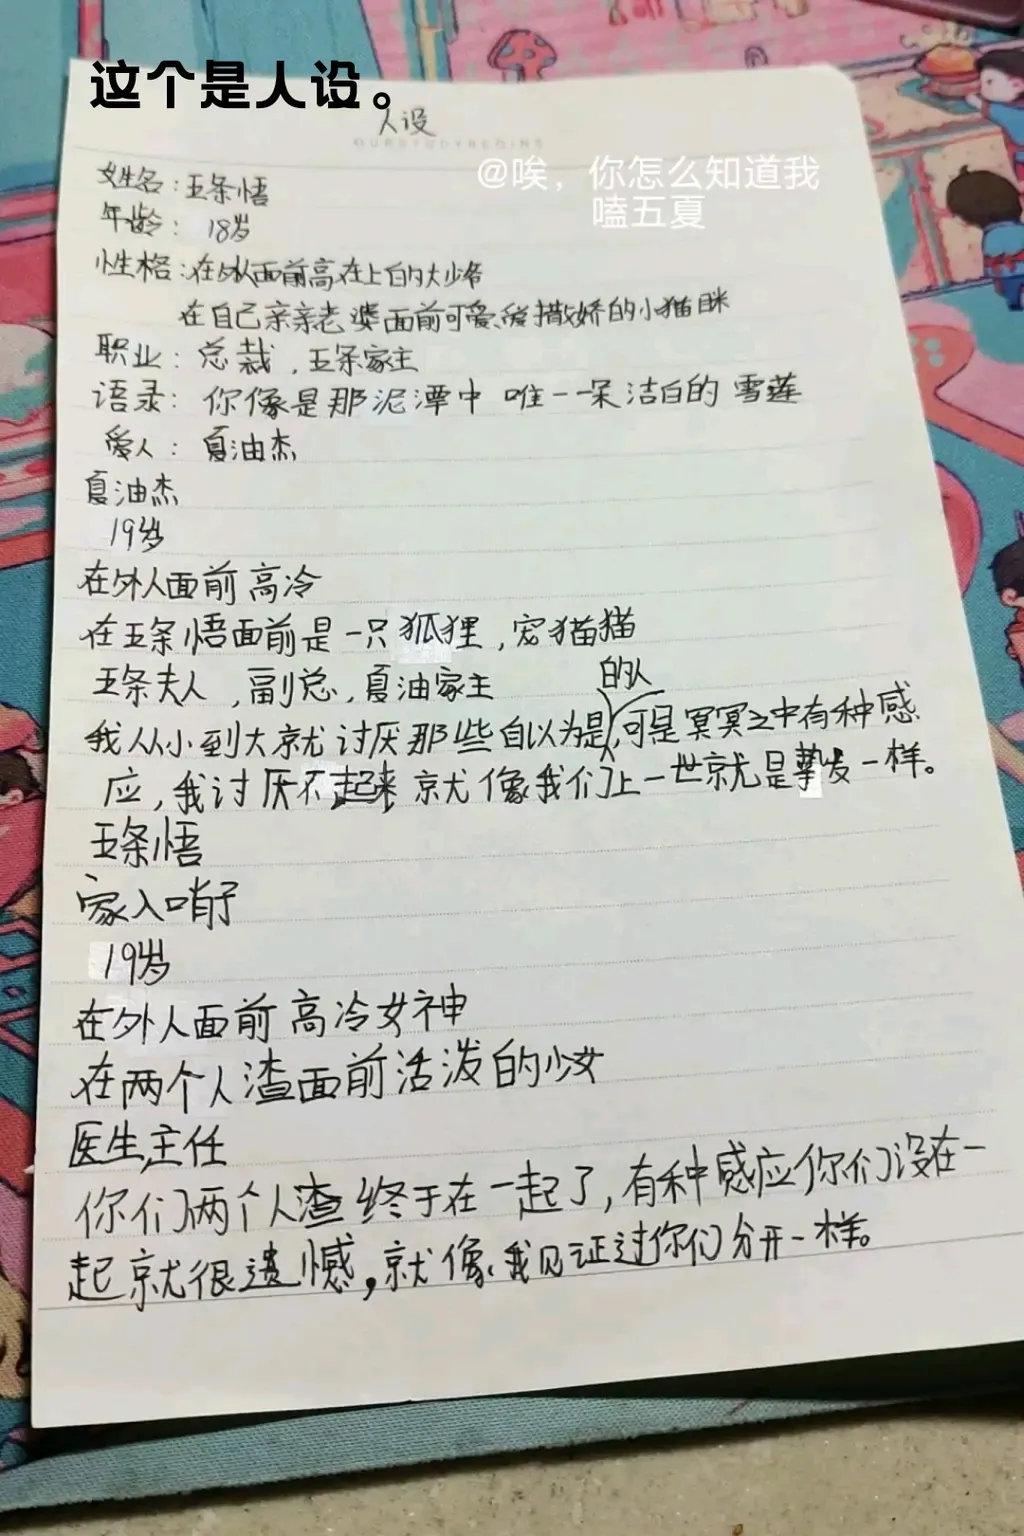 这个是人设。
人设
OURSTUDYBEGINS
@唉，你怎么知道我
嗑五夏
姓名：五条悟
年龄：18岁
性格：在外人面前高在上的大少爷
在自己亲亲老婆面前可爱爱撒娇的小猫咪
职业：总裁，五条家主
语录：你像是那泥潭中 唯一一朵洁白的 雪莲
爱人：夏油杰
夏油杰
19岁
在外人面前高冷
在五条悟面前是一只狐狸，宠猫猫
五条夫人，副总，夏油家主
的人
我从小到大就讨厌那些自以为是，可是冥冥之中有种感
应，我讨厌不起来 就像我们上一世就是挚友一样。
五条悟
家入哨子
19岁
在外人面前高冷女神
在两个人渣面前活泼的少女
医生，主任
你们两个人渣终于在一起了，有种感应你们没在一
起就很遗憾，就像我见证过你们分开一样。